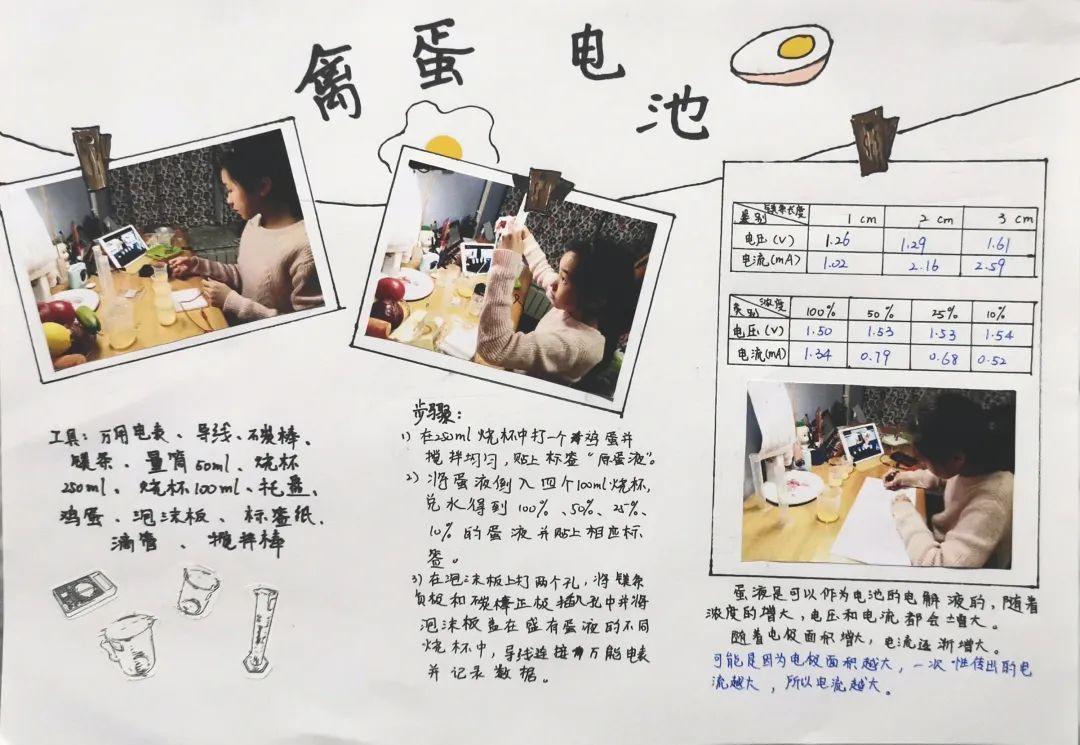 禽蛋电池
工具：万用电表、导线、碳棒、
镁条、量筒50ml、烧杯
250ml、烧杯100ml、托盘、
鸡蛋、泡沫板、标签纸、
滴管、搅拌棒
步骤：
1）在250ml烧杯中打一个鸡蛋并
搅拌均匀，贴上标签“原蛋液”。
2）将蛋液倒入四个100ml烧杯，
兑水得到100%、50%、25%、
10%的蛋液并贴上相应标
签。
3）在泡沫板上打两个孔，将镁条
负极和碳棒正极插入孔中并将
泡沫板盖在盛有蛋液的不同
烧杯中，导线连接万能电表
并记录数据。
类别 镁条长度 1cm 2cm 3cm
电压(V) 1.26 1.29 1.61
电流(mA) 1.02 2.16 2.59
类别 浓度 100% 50% 25% 10%
电压(V) 1.50 1.53 1.53 1.54
电流(mA) 1.34 0.79 0.68 0.52
蛋液是可以作为电池的电解液的，随着
浓度的增大，电压和电流都会增大。
随着电极面积增大，电流逐渐增大。
可能是因为电极面积越大，一次性传出的电
流越大，所以电流越大。